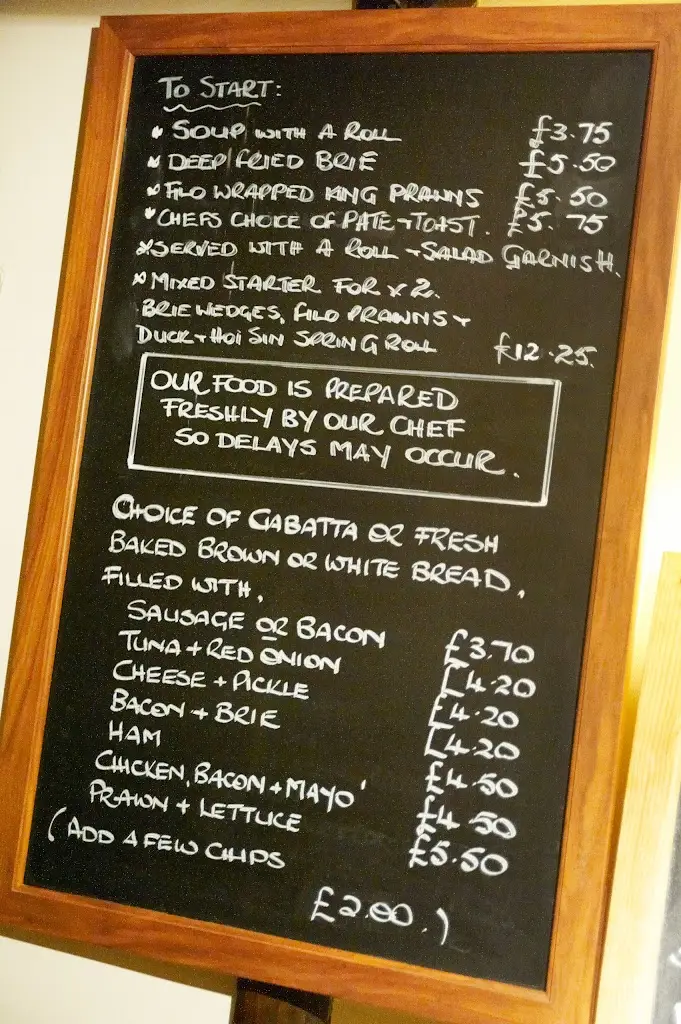 TO START:
* SOUP WITH A ROLL £3.75
* DEEP FRIED BRIE £5.50
* FILO WRAPPED KING PRAWNS £5.50
* CHEFS CHOICE OF PATE + TOAST. £5.75
* SERVED WITH A ROLL + SALAD GARNISH.
* MIXED STARTER FOR x 2.
BRIE WEDGES, FILO PRAWNS +
DUCK + HOI SIN SPRING ROLL £12.25.
OUR FOOD IS PREPARED
FRESHLY BY OUR CHEF
SO DELAYS MAY OCCUR.
CHOICE OF CABATTA OR FRESH
BAKED BROWN OR WHITE BREAD,
FILLED WITH,
SAUSAGE OR BACON £3.70
TUNA + RED ONION £4.20
CHEESE + PICKLE £4.20
BACON + BRIE £4.20
HAM £4.50
CHICKEN, BACON + MAYO' £4.50
PRAWN + LETTUCE £5.50
(ADD A FEW CHIPS
£2.00.)